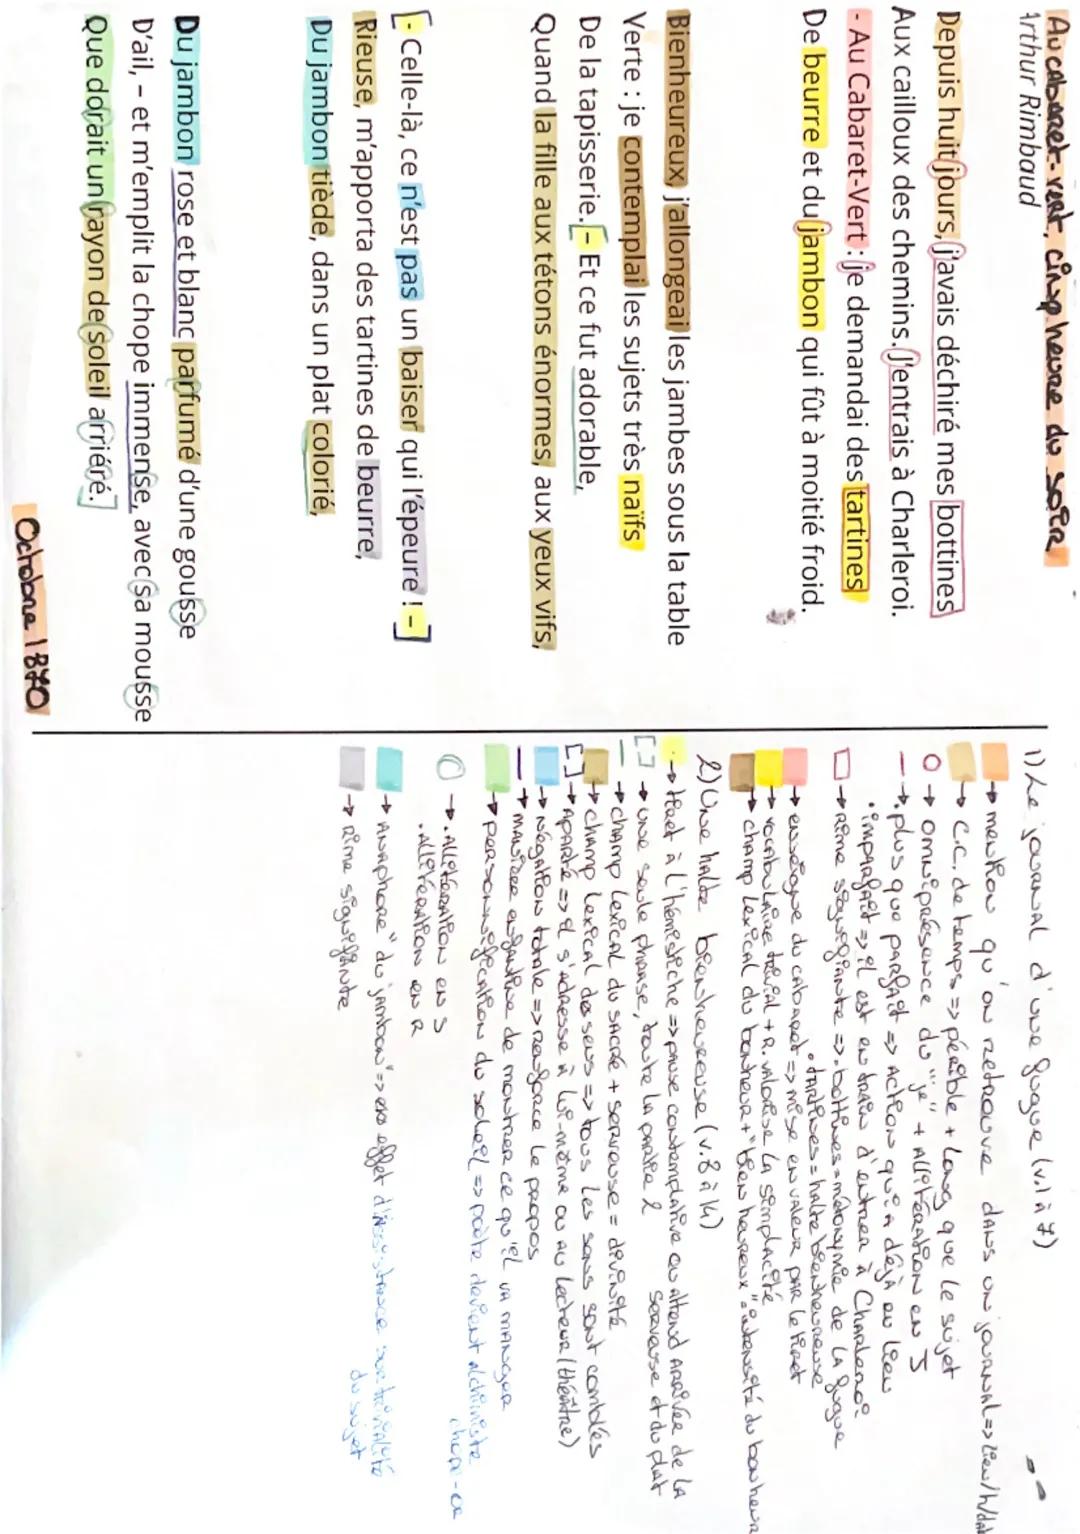 Au cabaret-vert, cinq heure du soir
Arthur Rimbaud
Depuis huit jours, j'avais déchiré mes bottines
Aux cailloux des chemins. J'entrais à Charleroi.
- Au Cabaret-Vert : je demandai des tartines
De beurre et du jambon qui fût à moitié froid.
Bienheureux, j'allongeai les jambes sous la table
Verte : je contemplai les sujets très naïfs
De la tapisserie. - Et ce fut adorable,
Quand la fille aux tétons énormes, aux yeux vifs,
[- Celle-là, ce n'est pas un baiser qui l'épeure ! -]
Rieuse, m'apporta des tartines de beurre,
Du jambon tiède, dans un plat colorié,
Du jambon rose et blanc parfumé d'une gousse
D'ail, – et m'emplit la chope immense, avec sa mousse
Que dorait un rayon de soleil arriéré.]
Octobre 1870
1) Le journal d'une fugue (v.1 à 7)
→ mention qu'on retrouve dans un journal => lieu/h/dat
→ C.C. de temps => pénible + long que le sujet
→ omniprésence du "je" + allitération en J
→ • plus que parfait => action qui a déjà eu lieu
• imparfait => il est en train d'entrer à Charleroi
→ Rime signifiante => • bottines = métonymie de la fugue
• tartines = halte bienheureuse
→ enseigne du cabaret => mise en valeur par le tiret
→ vocabulaire trivial + R. valorise la simplicité
→ champ lexical du bonheur + "bien heureux" = intensité du bonheur
2) Une halte bienheureuse (v.8 à 14)
→ tiret à l'hémistiche => pause contemplative ou attend arrivée de la serveuse et du plat
[ ] → une seule phrase, toute la partie 2
→ champ lexical du sacré + serveuse = divinité
→ champ lexical des sens => tous les sens sont comblés
[ ] → aparté => il s'adresse à lui-même ou au lecteur (théâtre)
→ négation totale => renforce le propos
→ manière enfantine de montrer ce qu'il va manger
→ personnification du soleil => poète devient alchimiste
→ • allitération en S
• allitération en R
chope - ce
→ anaphore "du jambon" => effet d'insistance sur trivialité du sujet
→ Rime signifiante